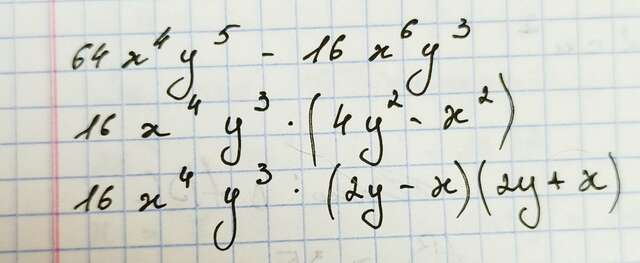 64x⁴y⁵ - 16x⁶y³
16x⁴y³ · (4y² - x²)
16x⁴y³ · (2y - x)(2y + x)